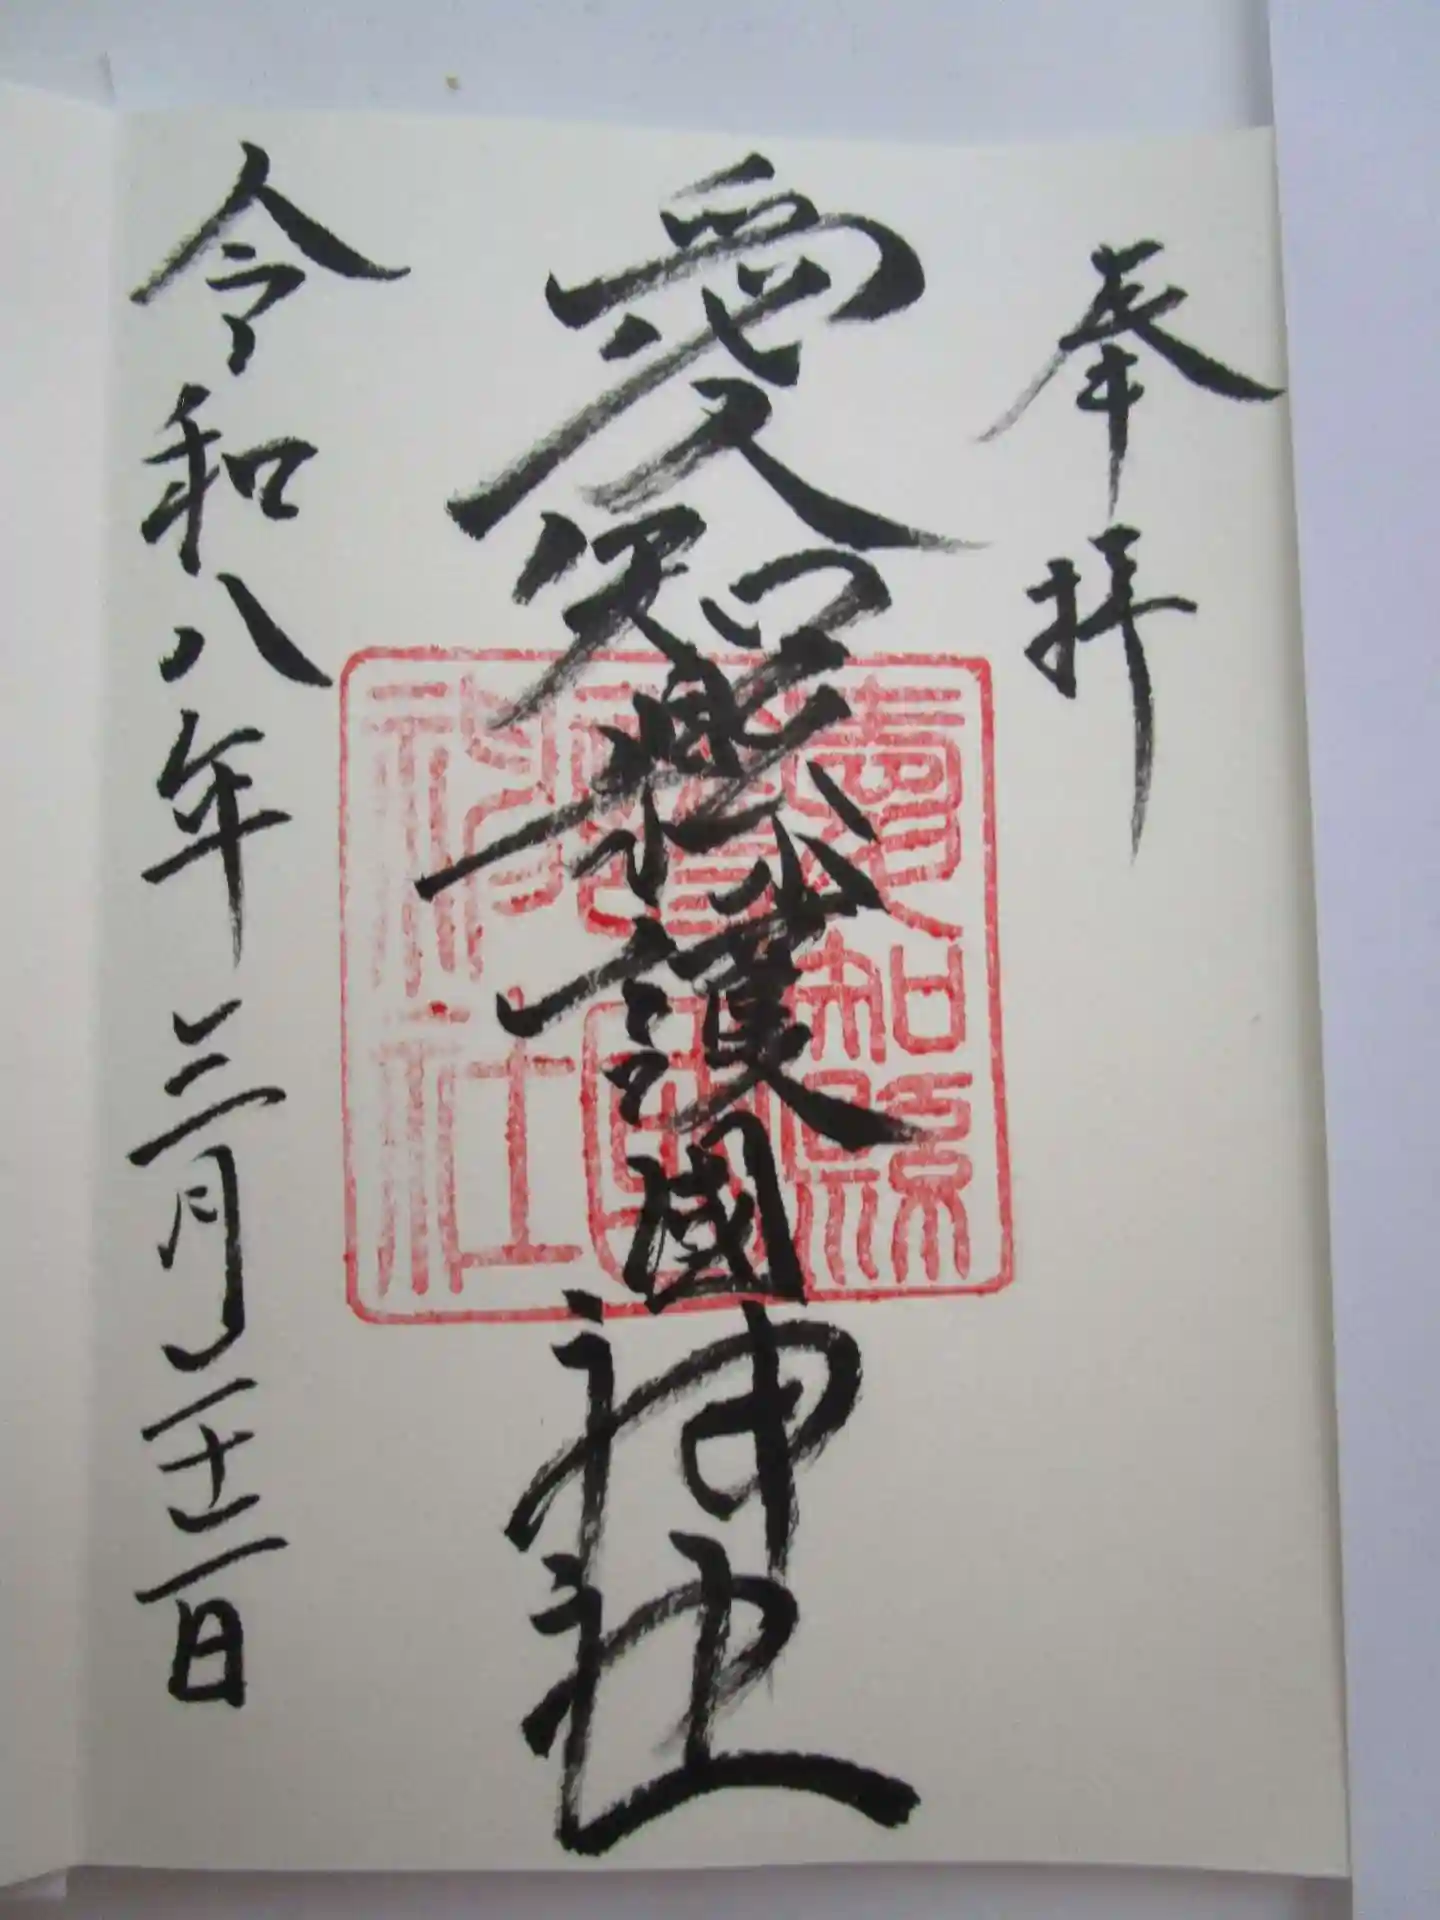 奉拝
愛知縣護國神社
令和八年三月二十二日
愛知縣
護國
神社